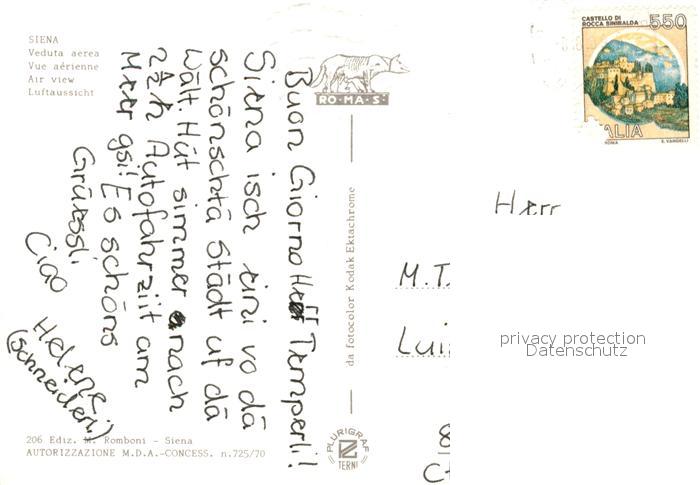 SIENA
Veduta aerea
Vue aérienne
Air view
Luftaussicht
RO·MA·S·
CASTELLO DI
ROCCA SINIBALDA
550
ALIA
ROMA
E. VANGELLI
Buon Giorno Herr Temperli!
Siena isch eini vo dä
schönschtä Städt uf dä
Wält. Hüt simmer nach
2½h Autofahrziit am
Meer gsi! Es schöns
Grüessli
Ciao
Helene
(Schneideri)
da fotocolor Kodak Ektachrome
Herr
M.T.
Lui
8
CH
privacy protection
Datenschutz
206 Ediz. M. Romboni - Siena
AUTORIZZAZIONE M.D.A.-CONCESS. n.725/70
PLURIGRAF
TERNI